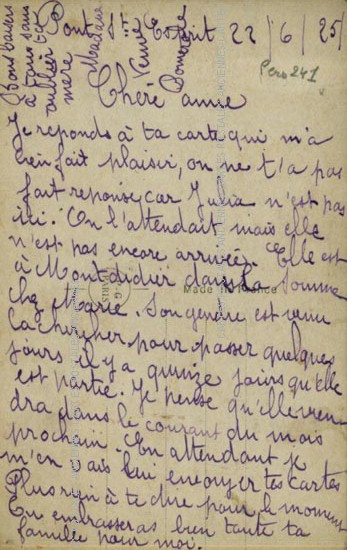 Pont Ste Esprit 22/6/25
Chère amie
Je reponds à ta carte qui m'a
bien fait plaisir, on ne t'a pas
fait reponse, car Junia n'est pas
ici. On l'attendait mais elle
n'est pas encore arrivée. Elle est
à Montdidier dans la Somme
chez Marie. Son gendre est venu
la chercher pour passer quelques
jours il y a quinze jours qu'elle
est partie. Je pense qu'elle vien
dra dans le courant du mois
prochain. En attendant je
m'en vais lui envoyer tes cartes
Plus rien à te dire pour le moment
Tu embrasseras bien toute ta
famille pour moi.
Bons baisers
à tous sans
oublier ta
mère
Madame
Veuve
Pers 241
Made in France
PARIS